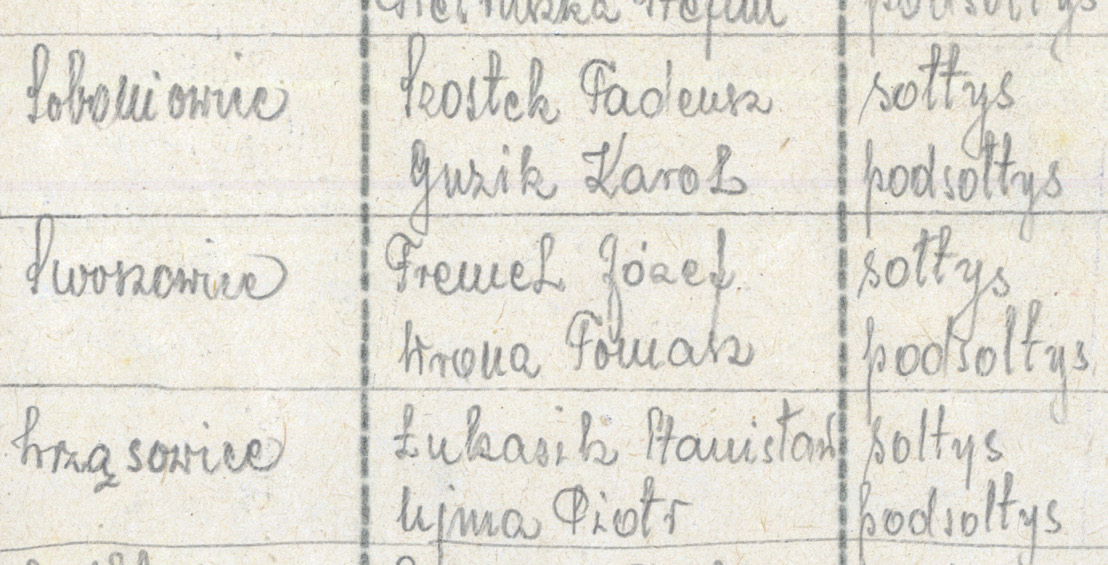 Pietruszka Stefan podsołtys
Soboniowice Szostek Tadeusz sołtys
Guzik Karol podsołtys
Swoszowice Tremel Józef sołtys
Wrona Tomasz podsołtys
Wrząsowice Łukasik Stanisław sołtys
Ujma Piotr podsołtys